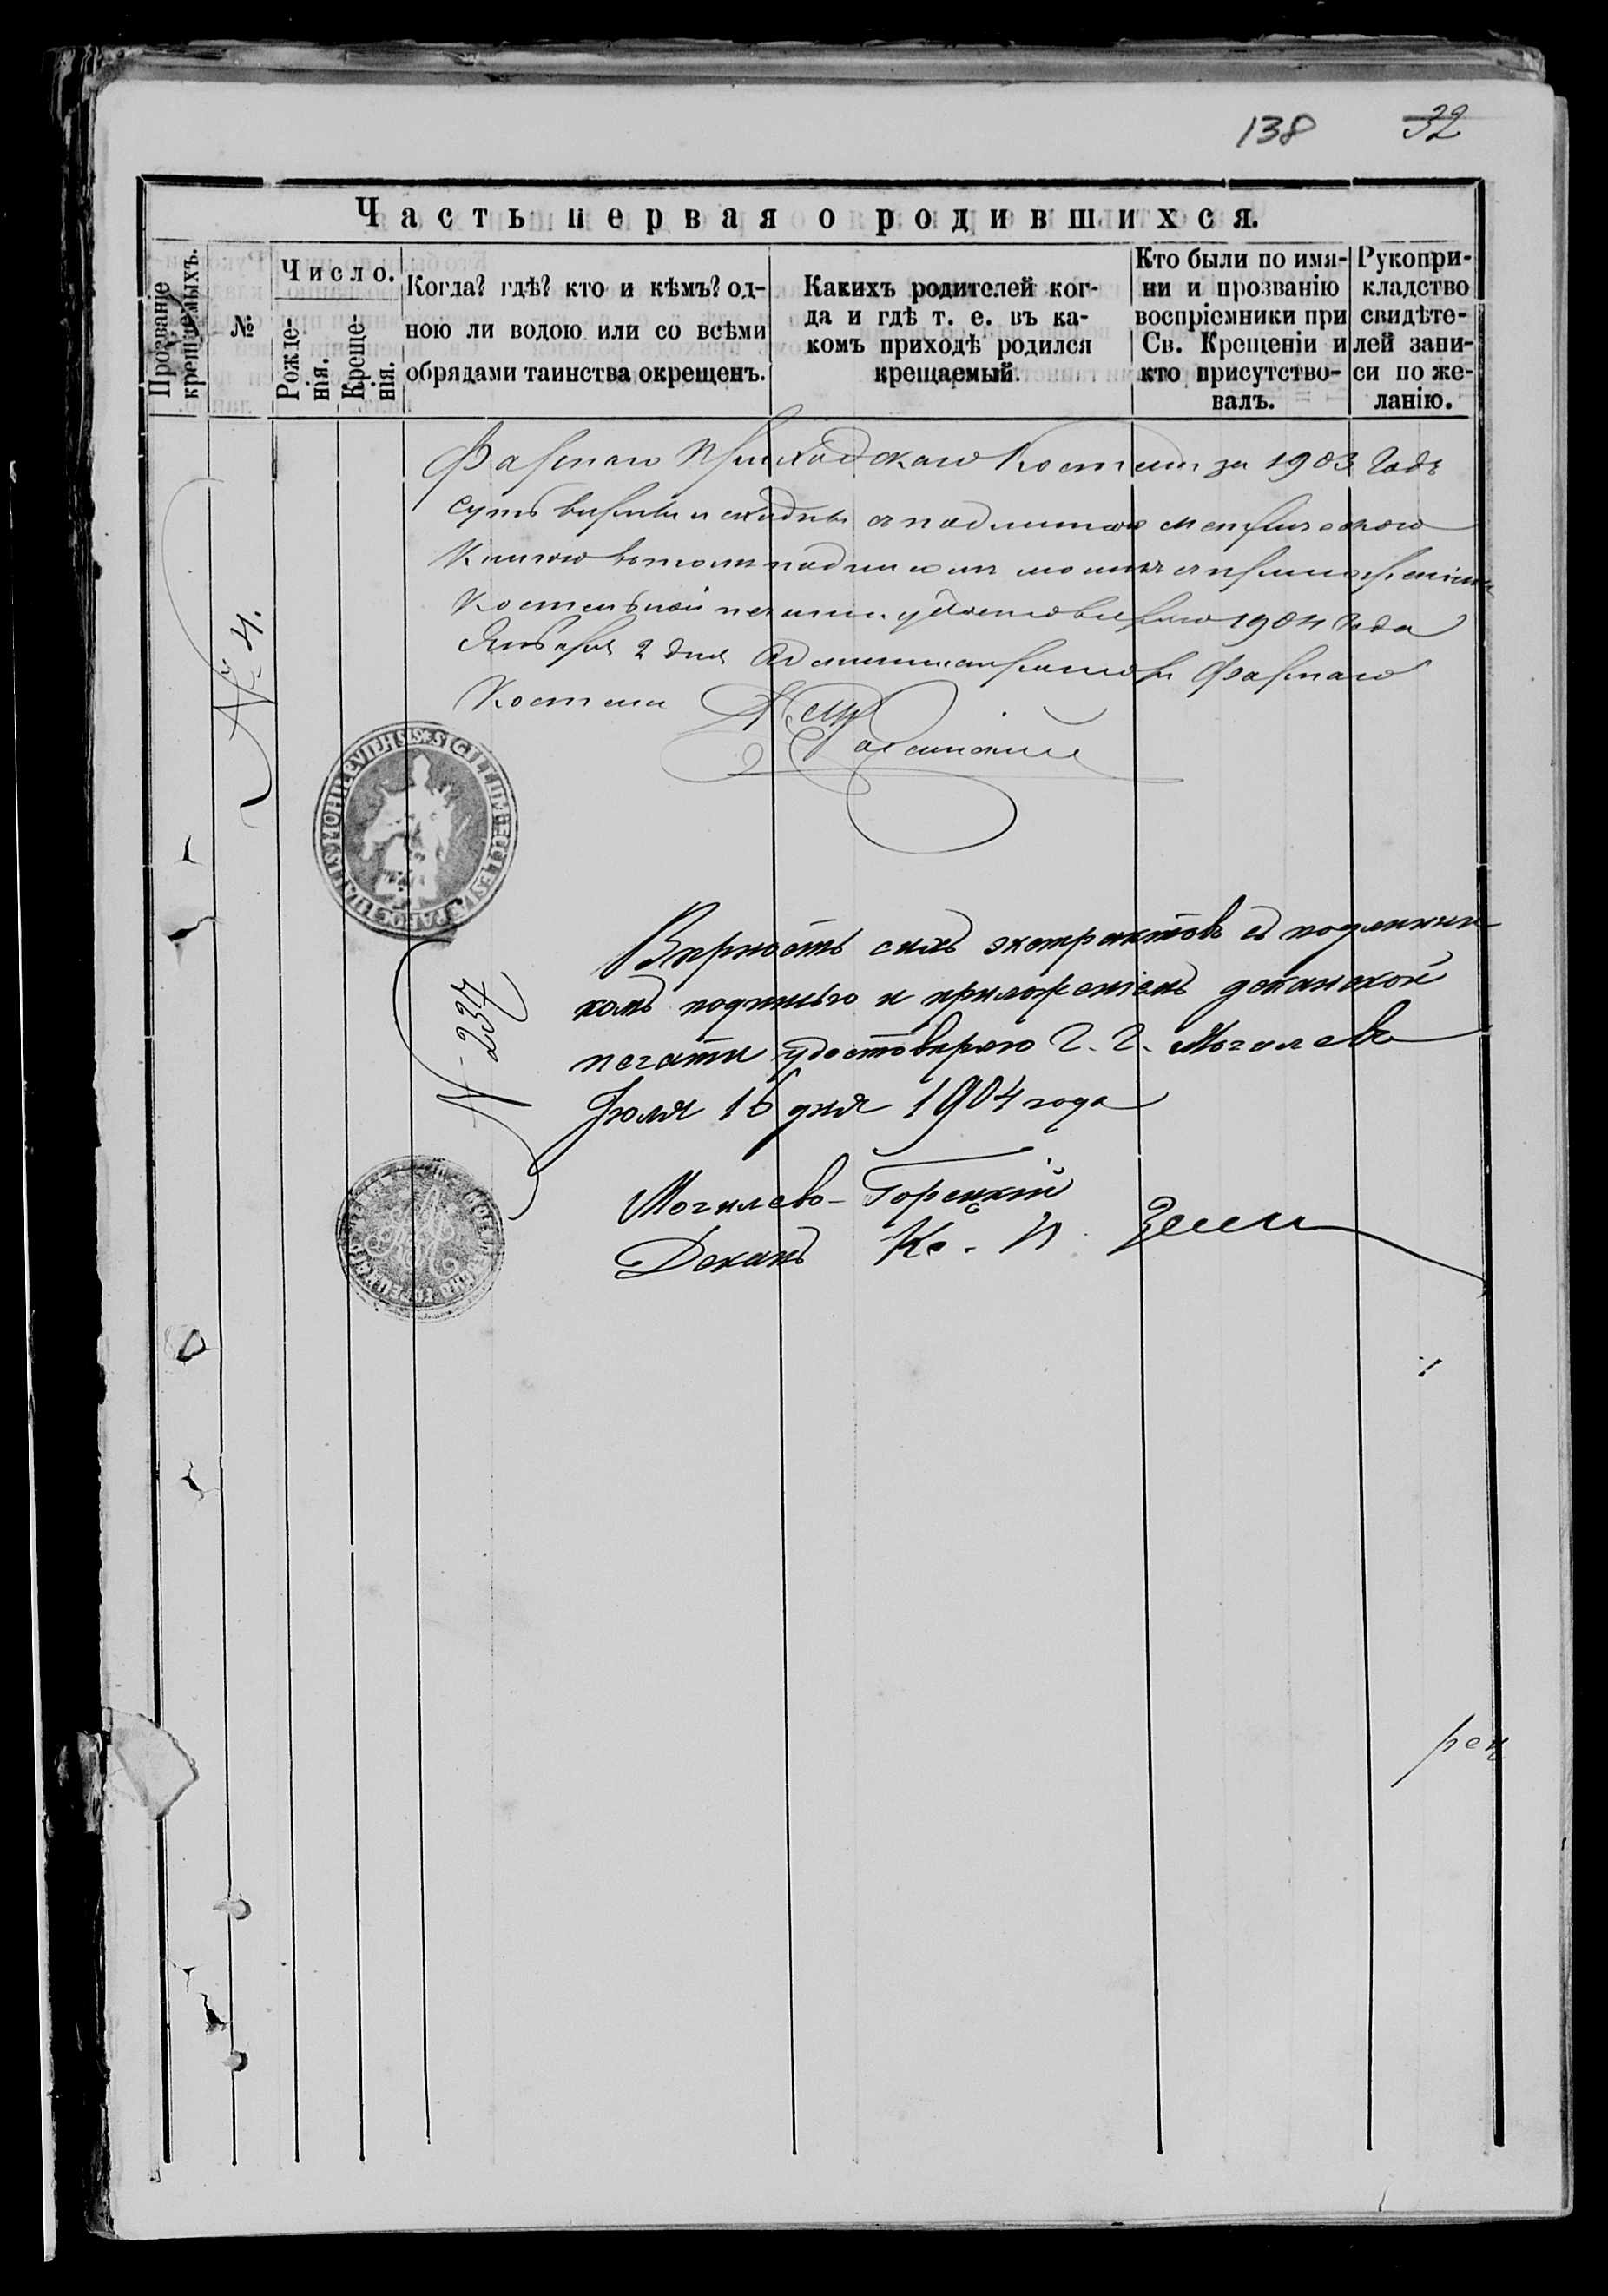 138 32
Часть первая о родившихся.
Прозваніе крещаемыхъ.
№
Число.
Рожде-
нія.
Креще-
нія.
Когда? гдѣ? кто и кѣмъ? од-
ною ли водою или со всѣми
обрядами таинства окрещенъ.
Какихъ родителей ког-
да и гдѣ т. е. въ ка-
комъ приходѣ родился
крещаемый.
Кто были по имя-
ни и прозванію
воспріемники при
Св. Крещеніи и
кто присутство-
валъ.
Рукопри-
кладство
свидѣте-
лей запи-
си по же-
ланію.
Фарнаго Приходскаго Костела за 1903 годъ
суть вѣрны и сходны съ подлинною метрическою
Книгою въ томъ подписомъ моимъ съ приложеніемъ
Костельной печати удостовѣряю 1904 года
Января 2 дня Администраторъ Фарнаго
Костела
№ 4.
SIGILLUM ECCLESIÆ PAROCHIALIS MOHILEVIENSIS
Вѣрность сихъ экстрактовъ съ подлинни
комъ подписью и приложеніемъ деканской
печати удостовѣряю Г. Г. Могилевъ
Іюля 16 дня 1904 года
N 237
Могилево-Горецкій
Деканъ Кс. И.
рец